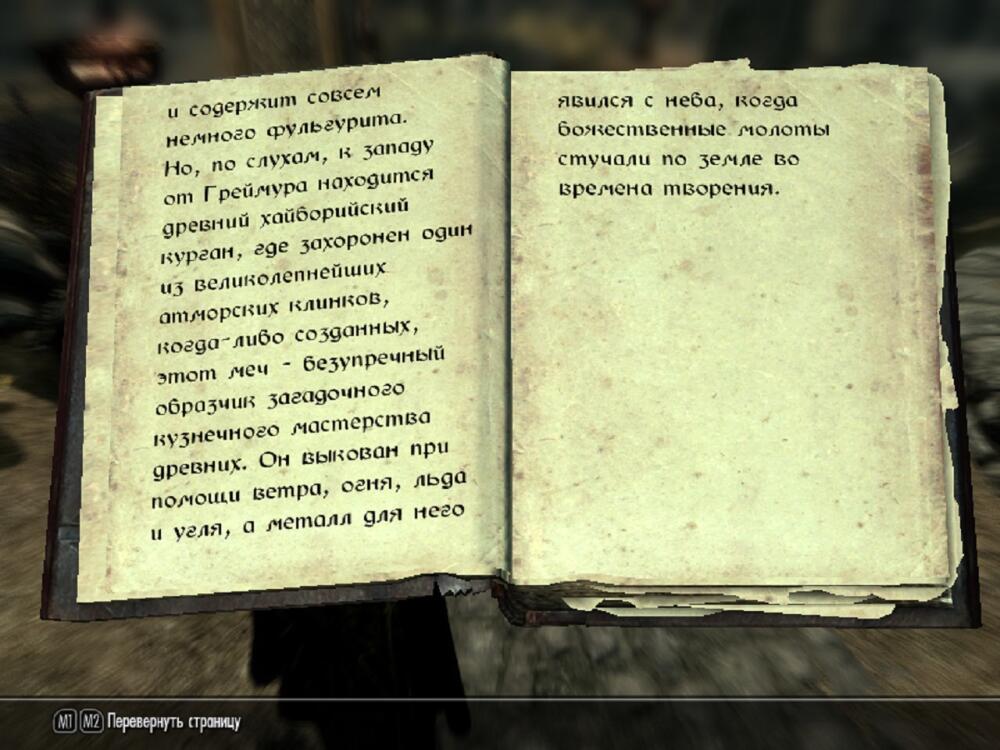 и содержит совсем
немного фульгурита.
Но, по слухам, к западу
от Греймура находится
древний хайборийский
курган, где захоронен один
из великолепнейших
атморских клинков,
когда-либо созданных,
этот меч - безупречный
образчик загадочного
кузнечного мастерства
древних. Он выкован при
помощи ветра, огня, льда
и угля, а металл для него
явился с неба, когда
божественные молоты
стучали по земле во
времена творения.
M1 M2 Перевернуть страницу